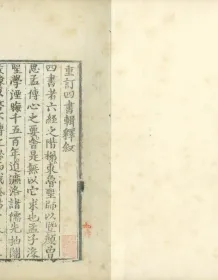 重訂四書輯釋叙
四書者六經之階梯東魯聖師以及顏曾
思孟傳心之要舍是無以它求也孟子沒
聖學湮晦千五百年迨濂洛諸儒先抽關